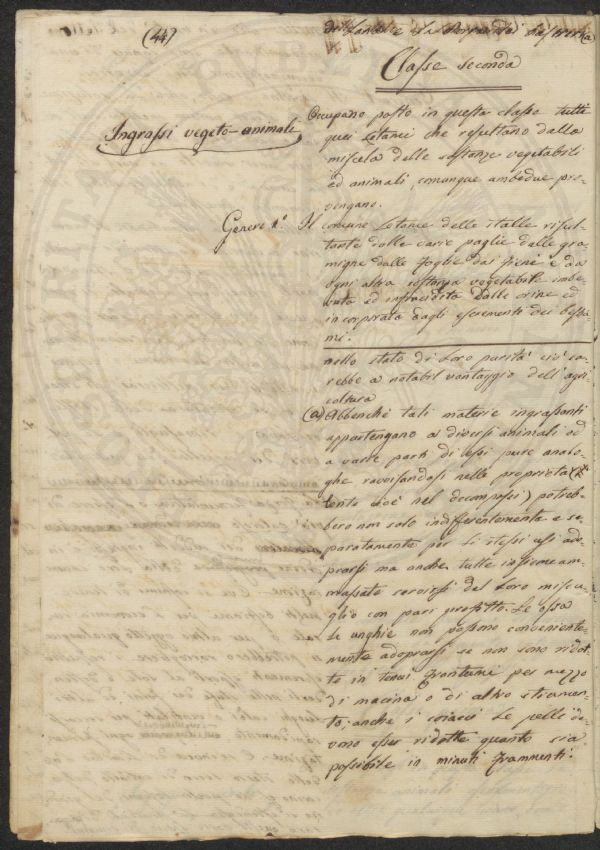 (44)
Classe seconda
Ingrassi vegeto-animali
Occupano posto in questa classe tutti
quei Letami che resultano dalla
miscela delle sostanze vegetabili
ed animali, comunque ambedue pro-
vengano.
Genere 1.° Il comune Letame delle stalle risul-
tante dalle varie paglie delle gra-
migne dalle foglie dai fieni e da
ogni altra sostanza vegetabile imbe-
vuta ed infracidita dalle orine ed
incorporata dagli escrementi dei bestia-
mi.
nello stato di Loro purità ciò sa-
rebbe a notabil vantaggio dell'agri-
coltura
(a) Abbenchè tali materie ingrassanti
appartengano a diversi animali ed
a varie parti di essi pure analo-
ghe ravvisandosi nelle proprietà
lente cioè nel decomporsi) potreb-
bero non solo indifferentemente e se-
paratamente per li stessi usi ado-
prarsi ma anche tutte insieme am-
massate servirsi del Loro miscu-
glio con pari profitto. Le ossa
Le unghie non possono conveniente-
mente adoprarsi se non sono ridot-
te in tenui frantumi per mezzo
di macina o di altro istrumen-
to; anche i cojacci Le pelli de-
vono esser ridotte quanto sia
possibile in minuti frammenti.